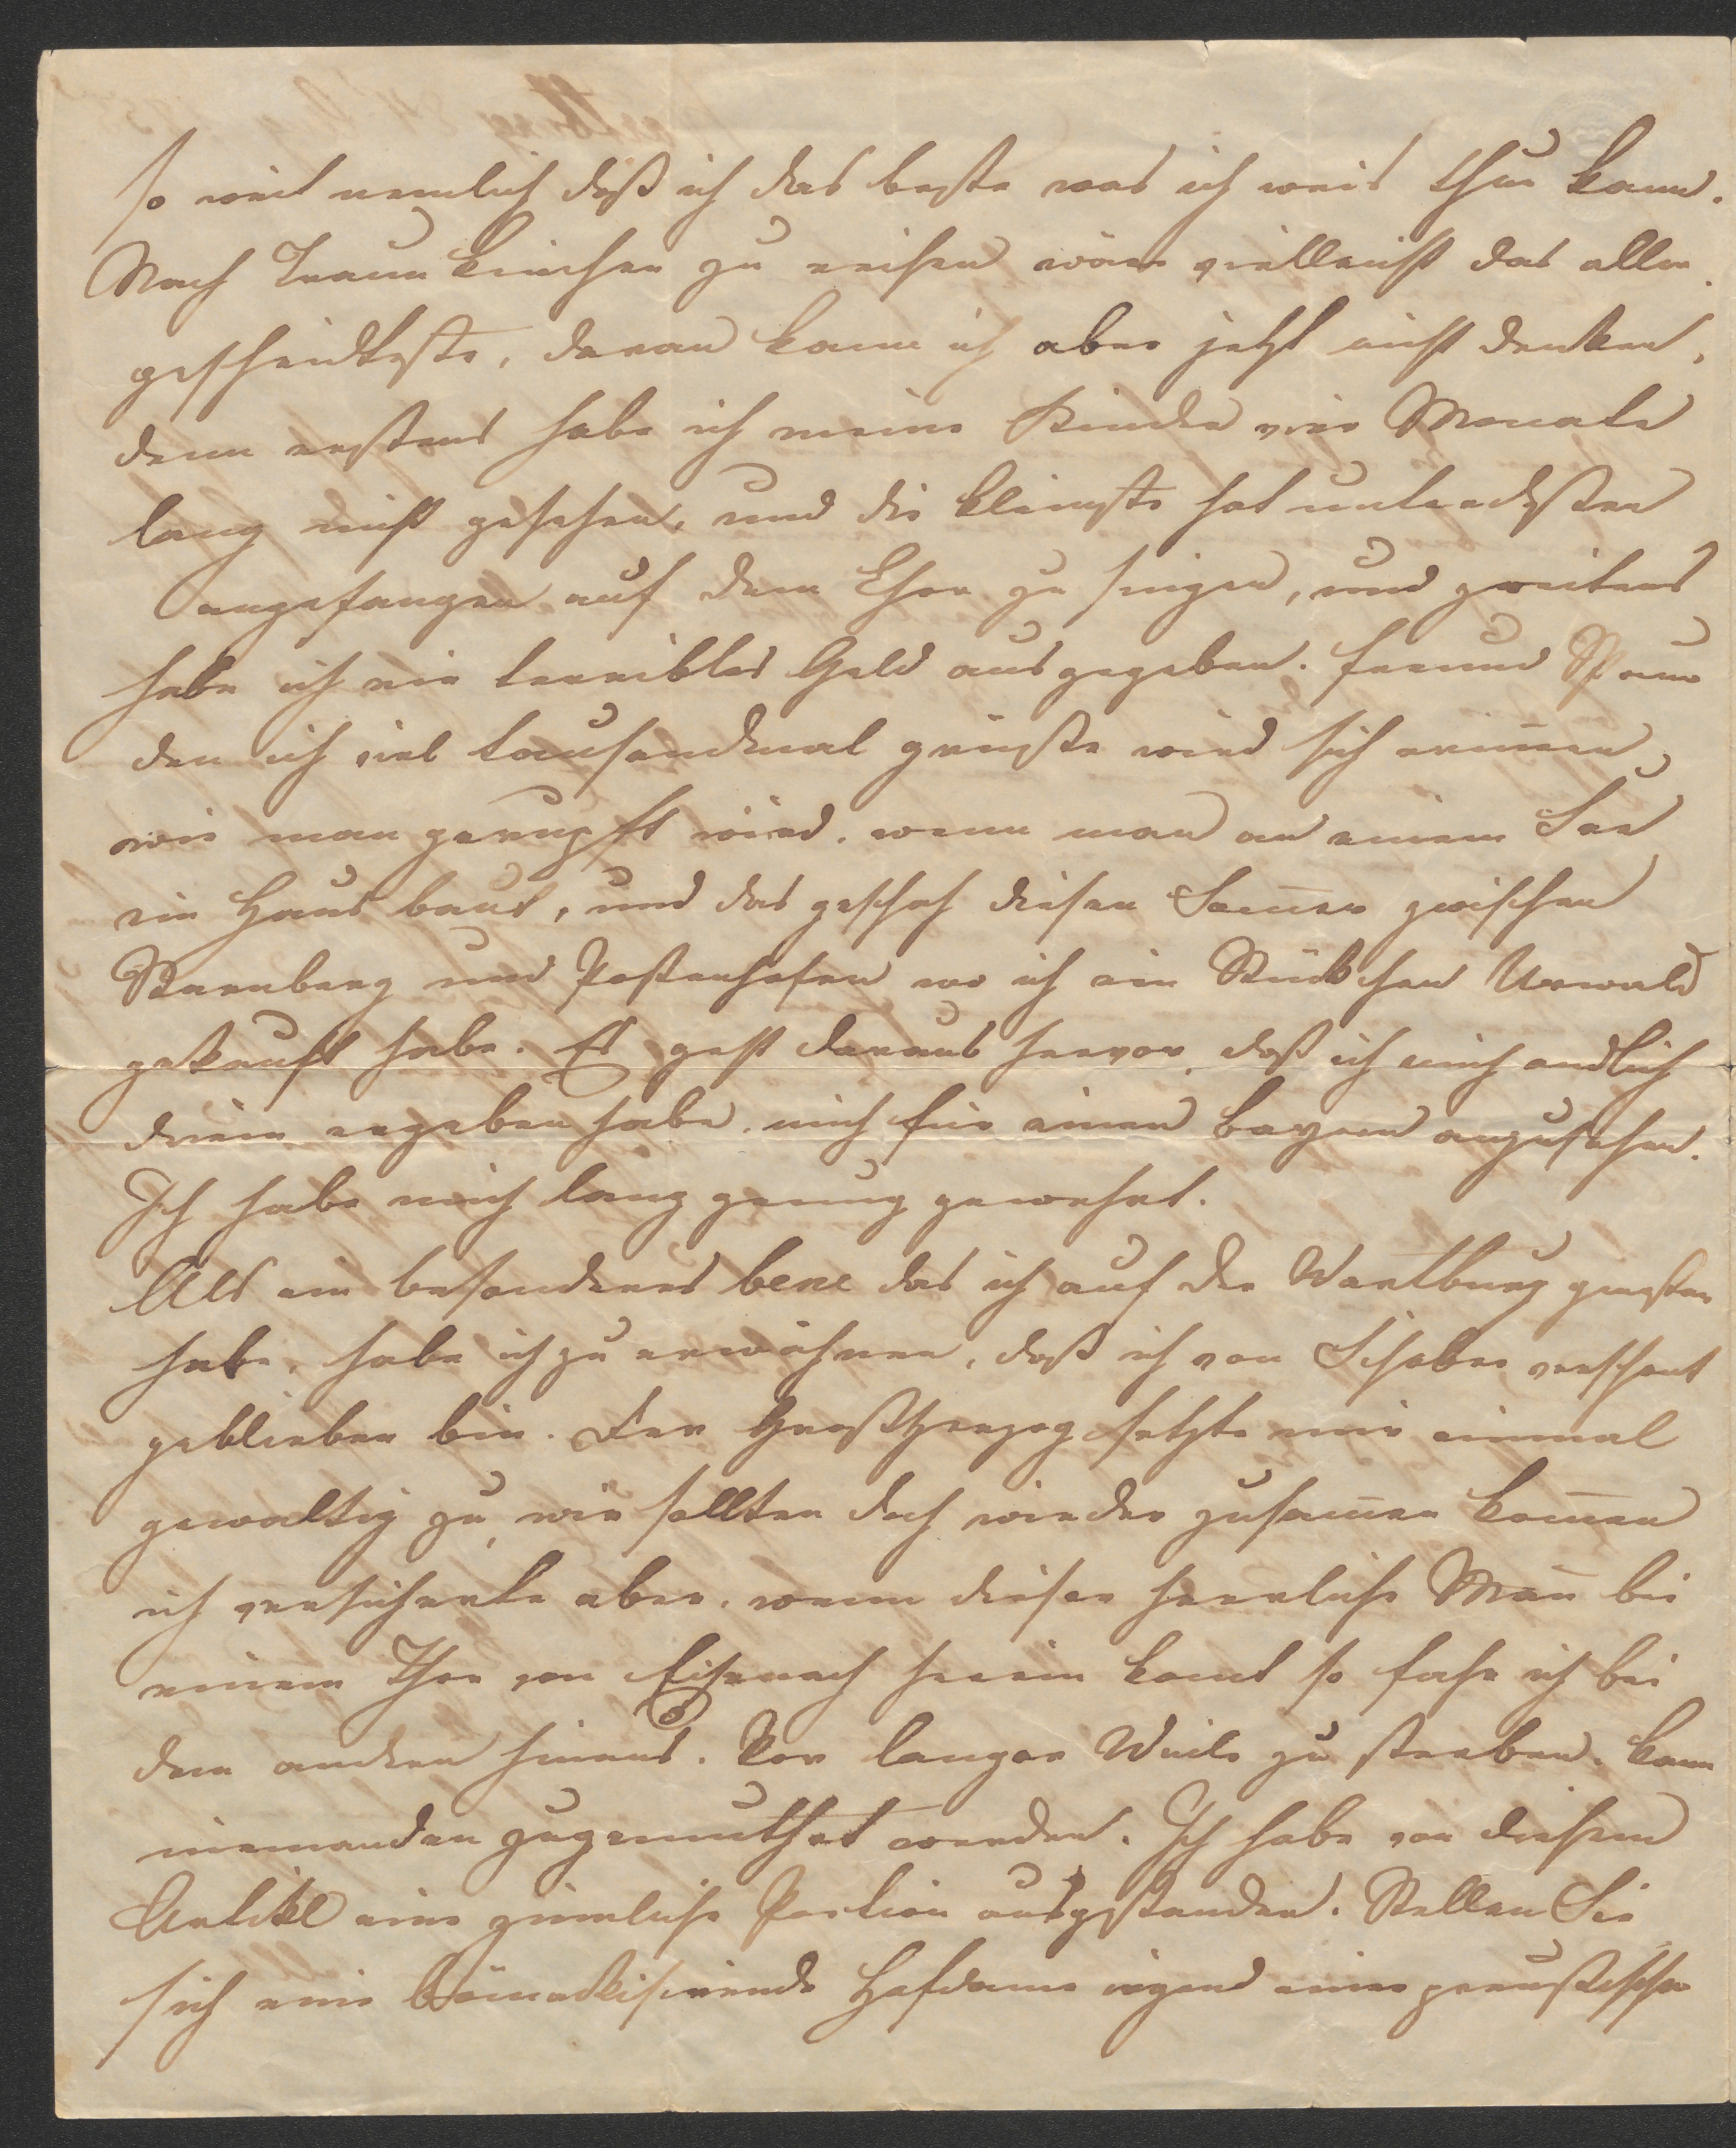 so weit nemlich daß ich das beste was ich weis thue kann.
Nach Traunkirchen zu reisen wäre vielleicht das aller
gescheidteste, daran kann ich aber jetzt nicht denken,
denn erstens habe ich meine Kinder vier Monate
lang nicht gesehen, und die kleinste hat unterdessen
angefangen auf dem Chor zu singen, und zweitens
habe ich ein terribles Geld ausgegeben. Freund Spaun
den ich viel tausendmal grüsse wird sich erin̄ern,
wie man gerupft wird, wenn man an einem See
ein Haus baut, und das geschah diesen Som̄er zwischen
Starnberg und Possenhofen wo ich ein Stückchen Urwald
gekauft habe. Es geht daraus hervor, daß ich mich endlich
drein ergeben habe, mich für einen Bayern anzusehen.
Ich habe mich lang genug gewehrt.
Als ein besonderes bene das ich auf der Wartburg genossen
habe, habe ich zu erwähnen, daß ich von Schober verschont
geblieben bin. Der Großherzog setzte mir einmal
gewaltig zu, wir sollten doch wieder zusam̄en kom̄en
ich versicherte aber, wenn dieser herrliche Man̄ bei
einem Thor von Eisenach herein kom̄t so fahr ich bei
dem andern hinaus. Vor langer Weile zu sterben, kann
niemanden zugemuthet werden. Ich habe von diesem
Artikel eine ziemliche Portion ausgestanden. Stellen Sie
sich eine Hofdame irgend einer preussischen